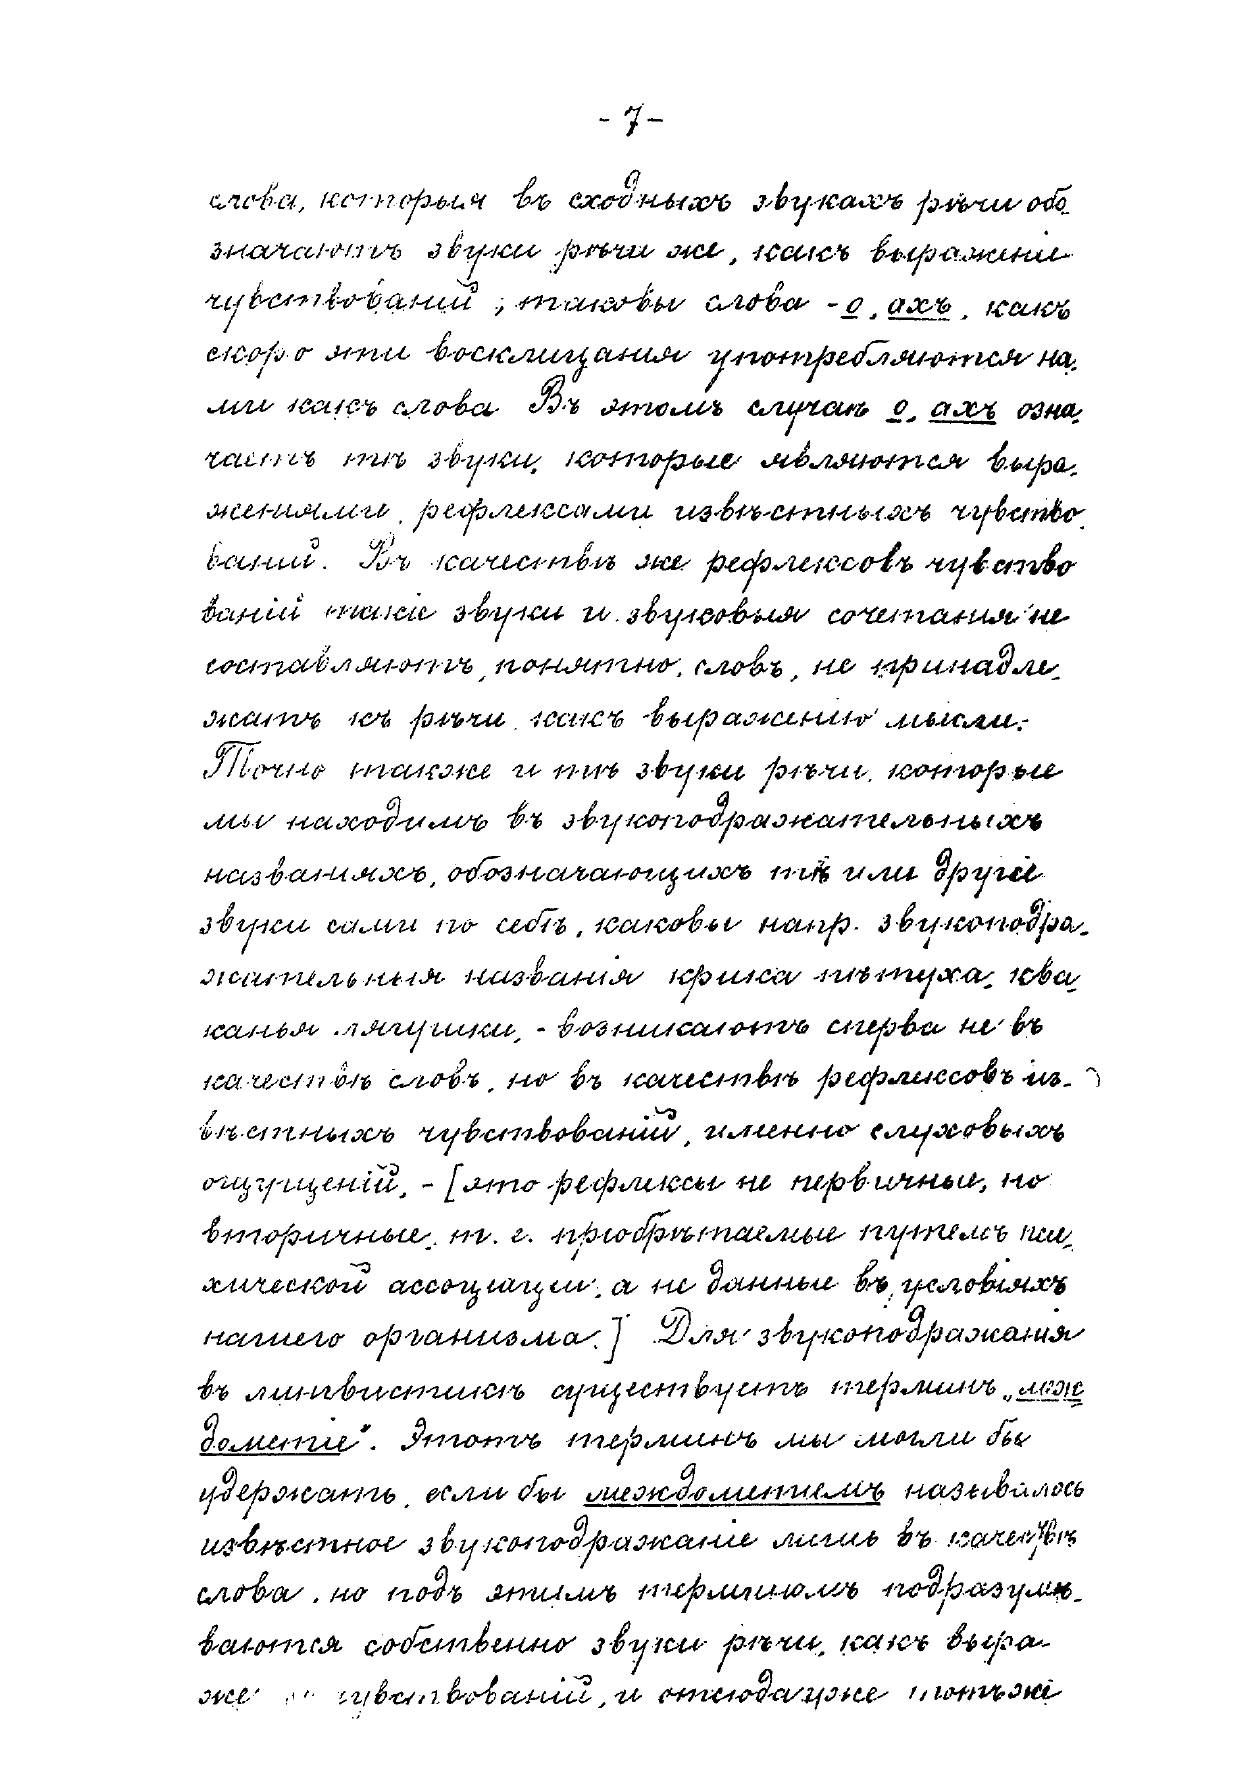 - 7 -
слова, которыя въ сходныхъ звукахъ рѣчи обо
значаютъ звуки рѣчи же, какъ выраженіе
чувствованій; таковы слова - о, ахъ, какъ
скоро эти восклицания употребляются на-
ми какъ слова Въ этомъ случаѣ о, ахъ озна-
чаетъ тѣ звуки, которые являются выра-
жениями, рефлексами извѣстныхъ чувство-
ваний. Въ качествѣ же рефлексовъ чувство
ваній такіе звуки и звуковыя сочетания не
составляютъ, понятно, словъ, не принадле-
жатъ къ рѣчи, какъ выражению мысли.
Точно также и тѣ звуки рѣчи, которые
мы находимъ въ звукоподражательныхъ
названияхъ, обозначающихъ тѣ или другіе
звуки сами по себѣ, каковы напр. звукоподра-
жательныя названія крика пѣтуха, ква-
канья лягушки, - возникаютъ сперва не въ
качествѣ словъ, но въ качествѣ рефлексовъ из-
вѣстныхъ чувствованій, именно слуховыхъ
ощущеній, - [это рефлексы не первичные, но
вторичные, т. е. приобрѣтаемые путемъ пси-
хической ассоциации, а не данные въ условіяхъ
нашего организма.] Для звукоподражания
въ лингвистикѣ существуетъ терминъ „меж
дометіе". Этотъ терминъ мы могли бы
удержать, если бы междометиемъ называлось
извѣстное звукоподражаніе лишь въ качествѣ
слова, но подъ этимъ терминомъ подразумѣ-
ваются собственно звуки рѣчи, какъ выра-
же чувствованій, и отсюда уже тотъ же